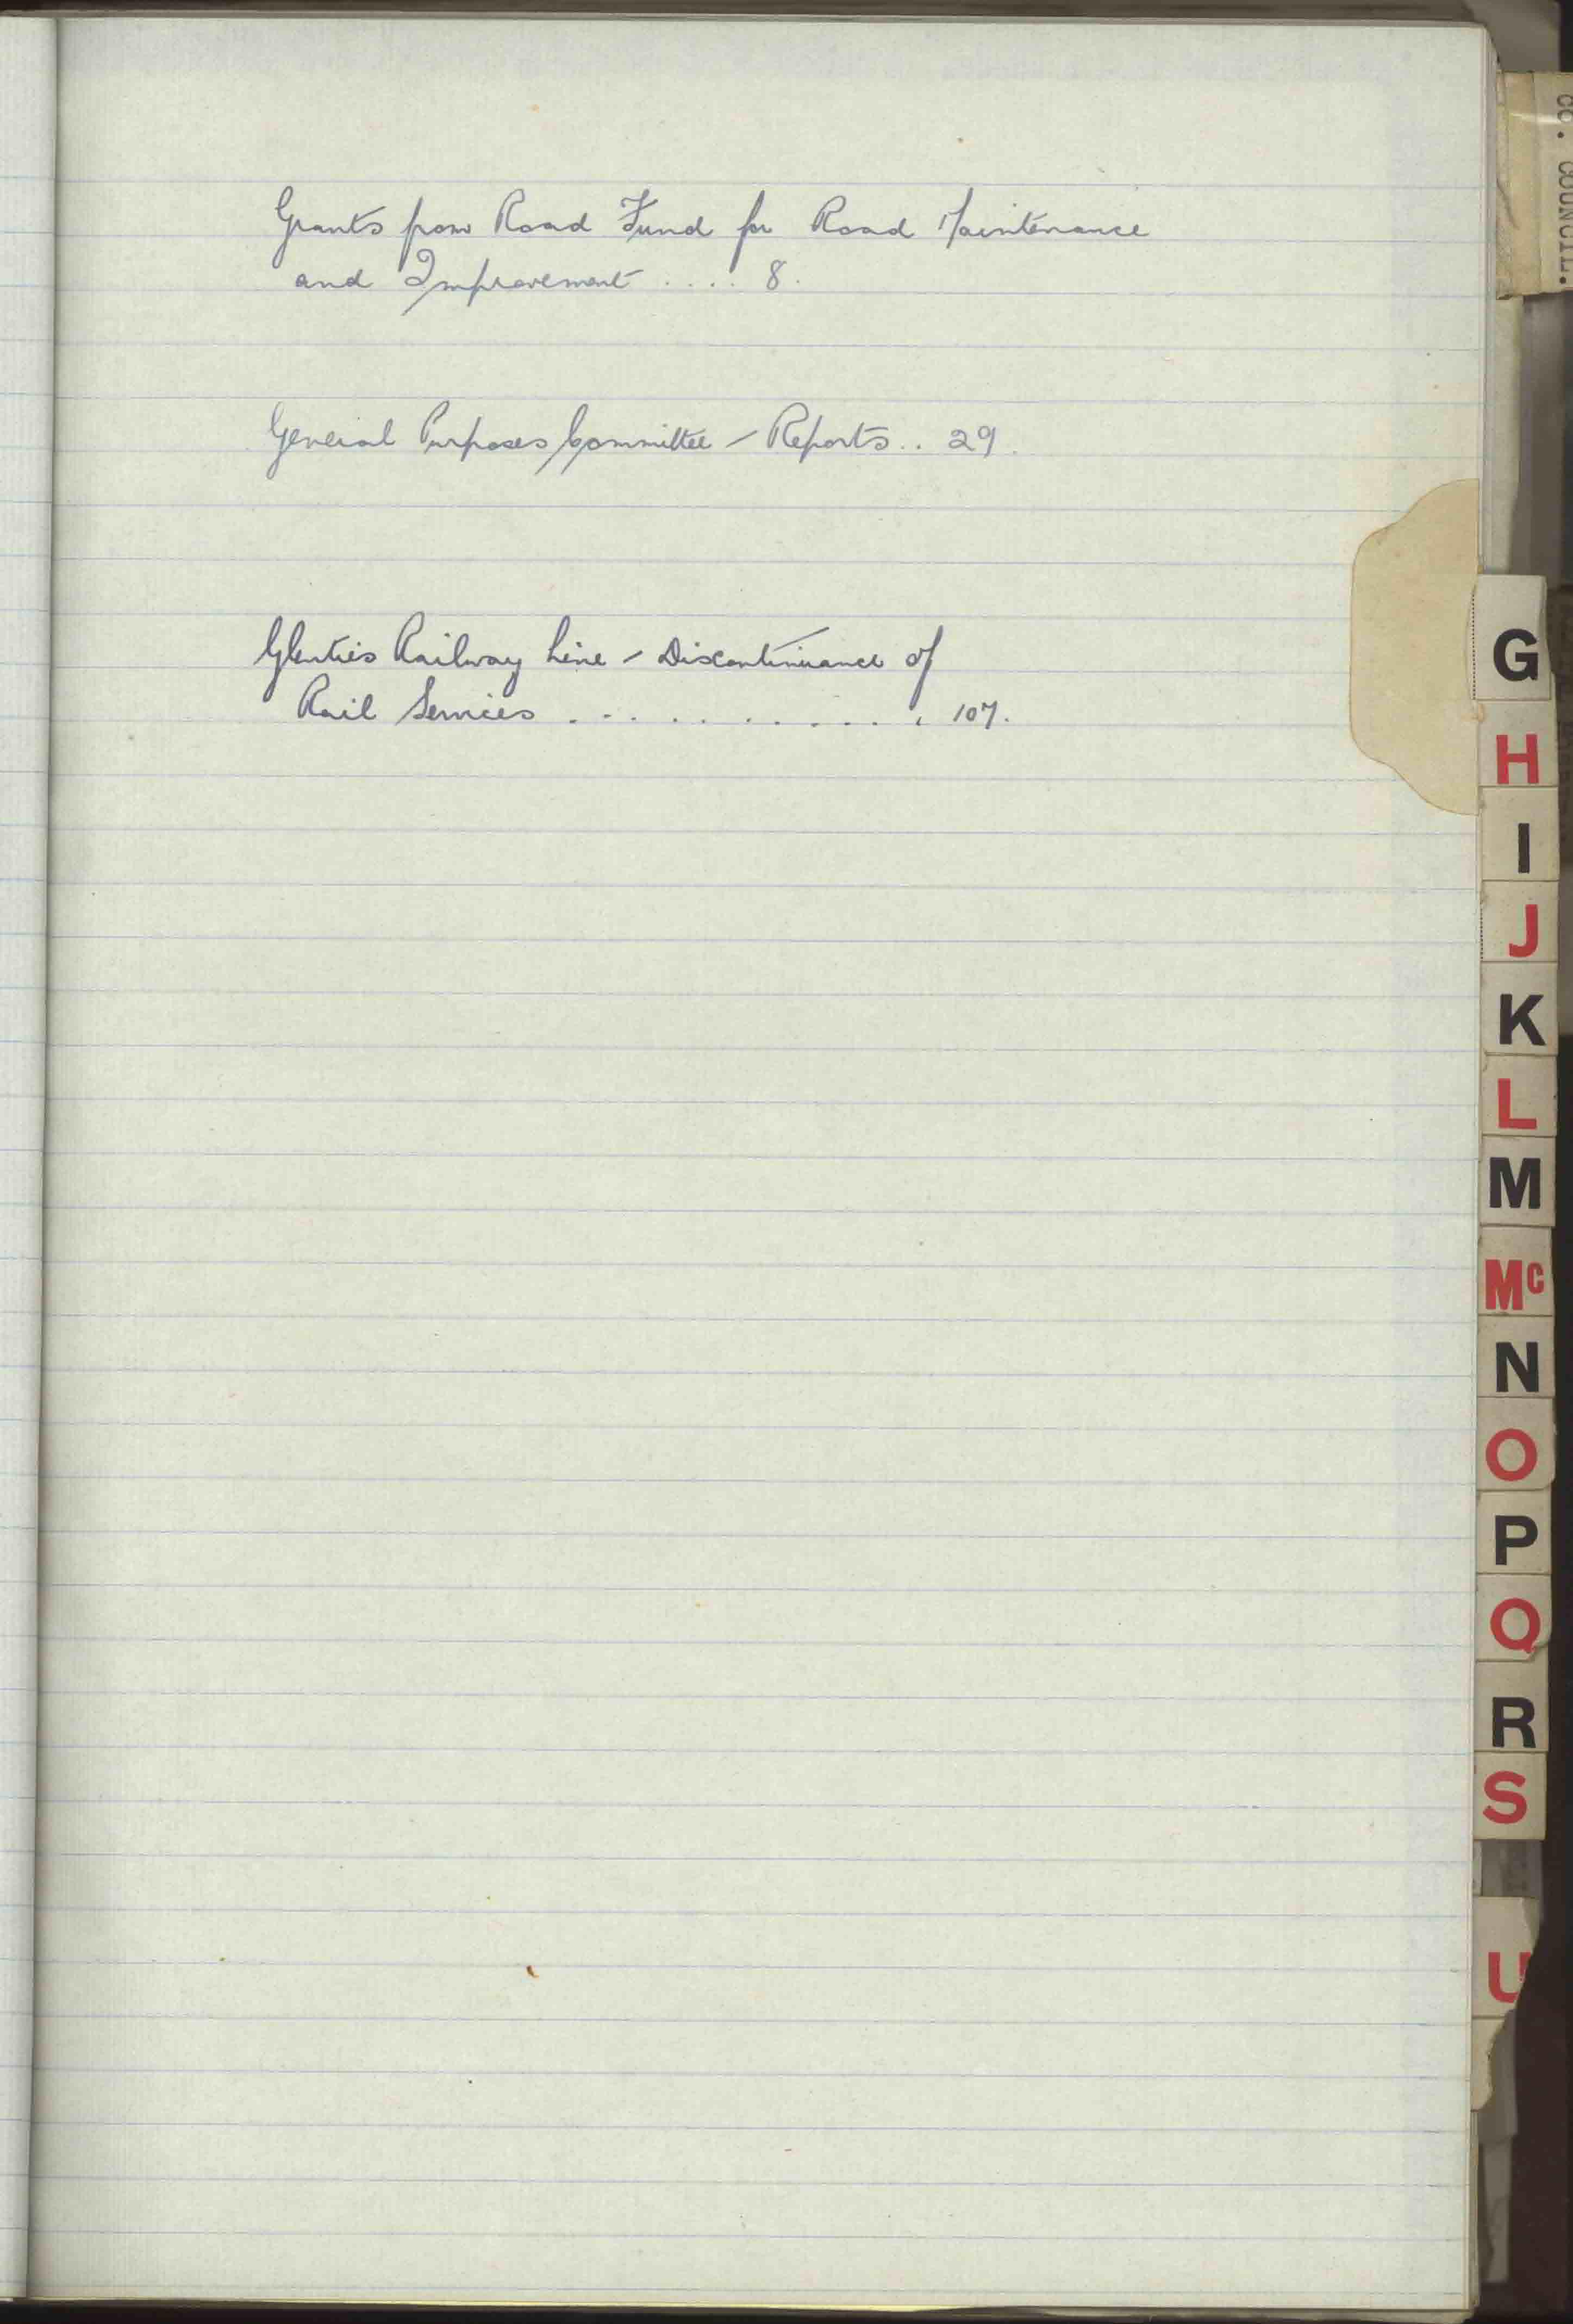 Grants from Road Fund for Road Maintenance
and Improvement .... 8.
General Purposes Committee - Reports .. 29.
Glenties Railway Line - Discontinuance of
Rail Services . . . . . . . . . . . 107.
CO. COUNCIL.
G
H
I
J
K
L
M
Mc
N
O
P
Q
R
S
U